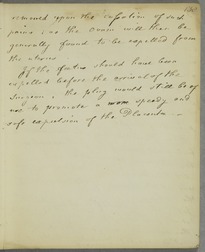 removed upon the cessation of such
pains, as the ovum will then be
generally found to be expelled from
the uterus
If the foetus should have been
expelled before the arrival of the
Surgeon, the policy would still be of
not to promote a more speedy and
safe expulsion of the Placenta